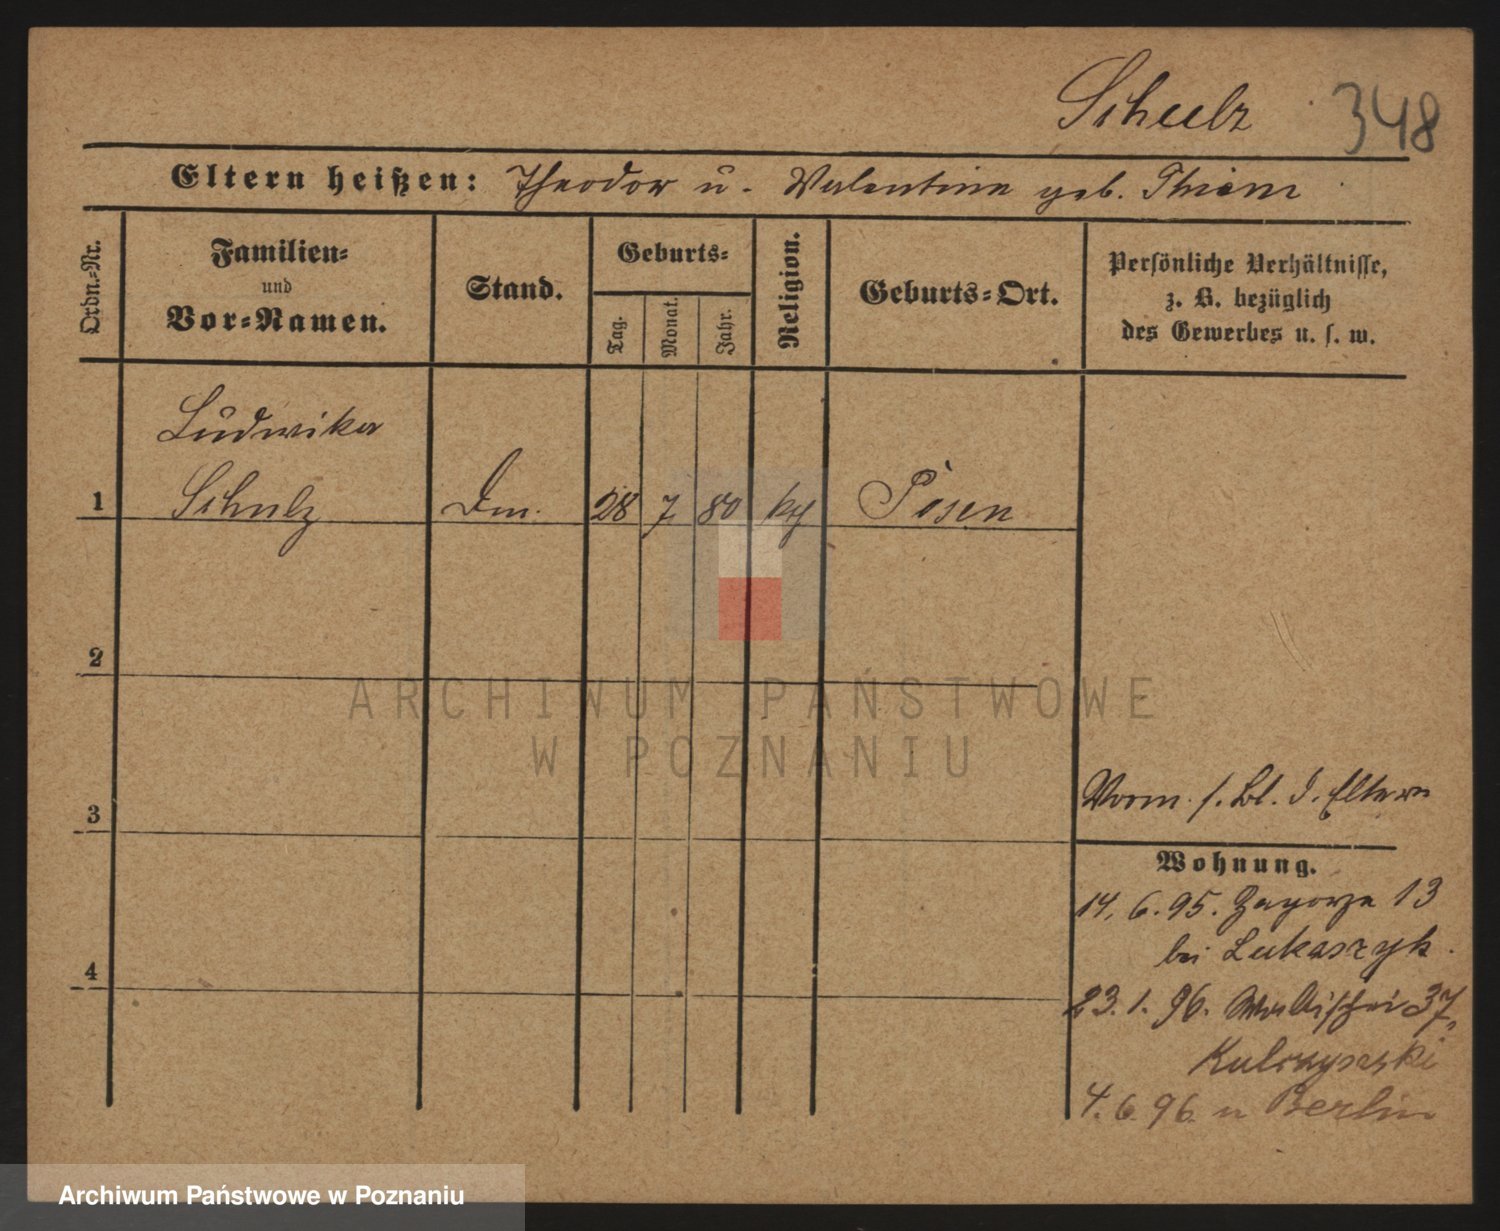 Schulz 348
Eltern heißen: Theodor u. Valentine geb. Thiem
Ordn.=Nr.
Familien=
und
Vor=Namen.
Stand.
Geburts=
Tag.
Monat.
Jahr.
Religion.
Geburts=Ort.
Persönliche Verhältnisse,
z. B. bezüglich
des Gewerbes u. s. w.
Ludwika
1 Schulz Dm. 28 7 80 Posen
2
ARCHIWUM PAŃSTWOWE
W POZNANIU
3
Vorm. s. Bl. d. Eltern
Wohnung.
14.6.95. Zagorze 13
bei Lukaszyk.
4
23.1.96. Wallischei 37,
4.6.96. n Berlin
Archiwum Państwowe w Poznaniu